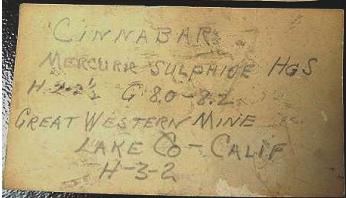 CINNABAR
MERCURIC SULPHIDE HGS
H 2-2½ G 8.0-8.2
GREAT WESTERN MINE
LAKE CO - CALIF
H-3-2